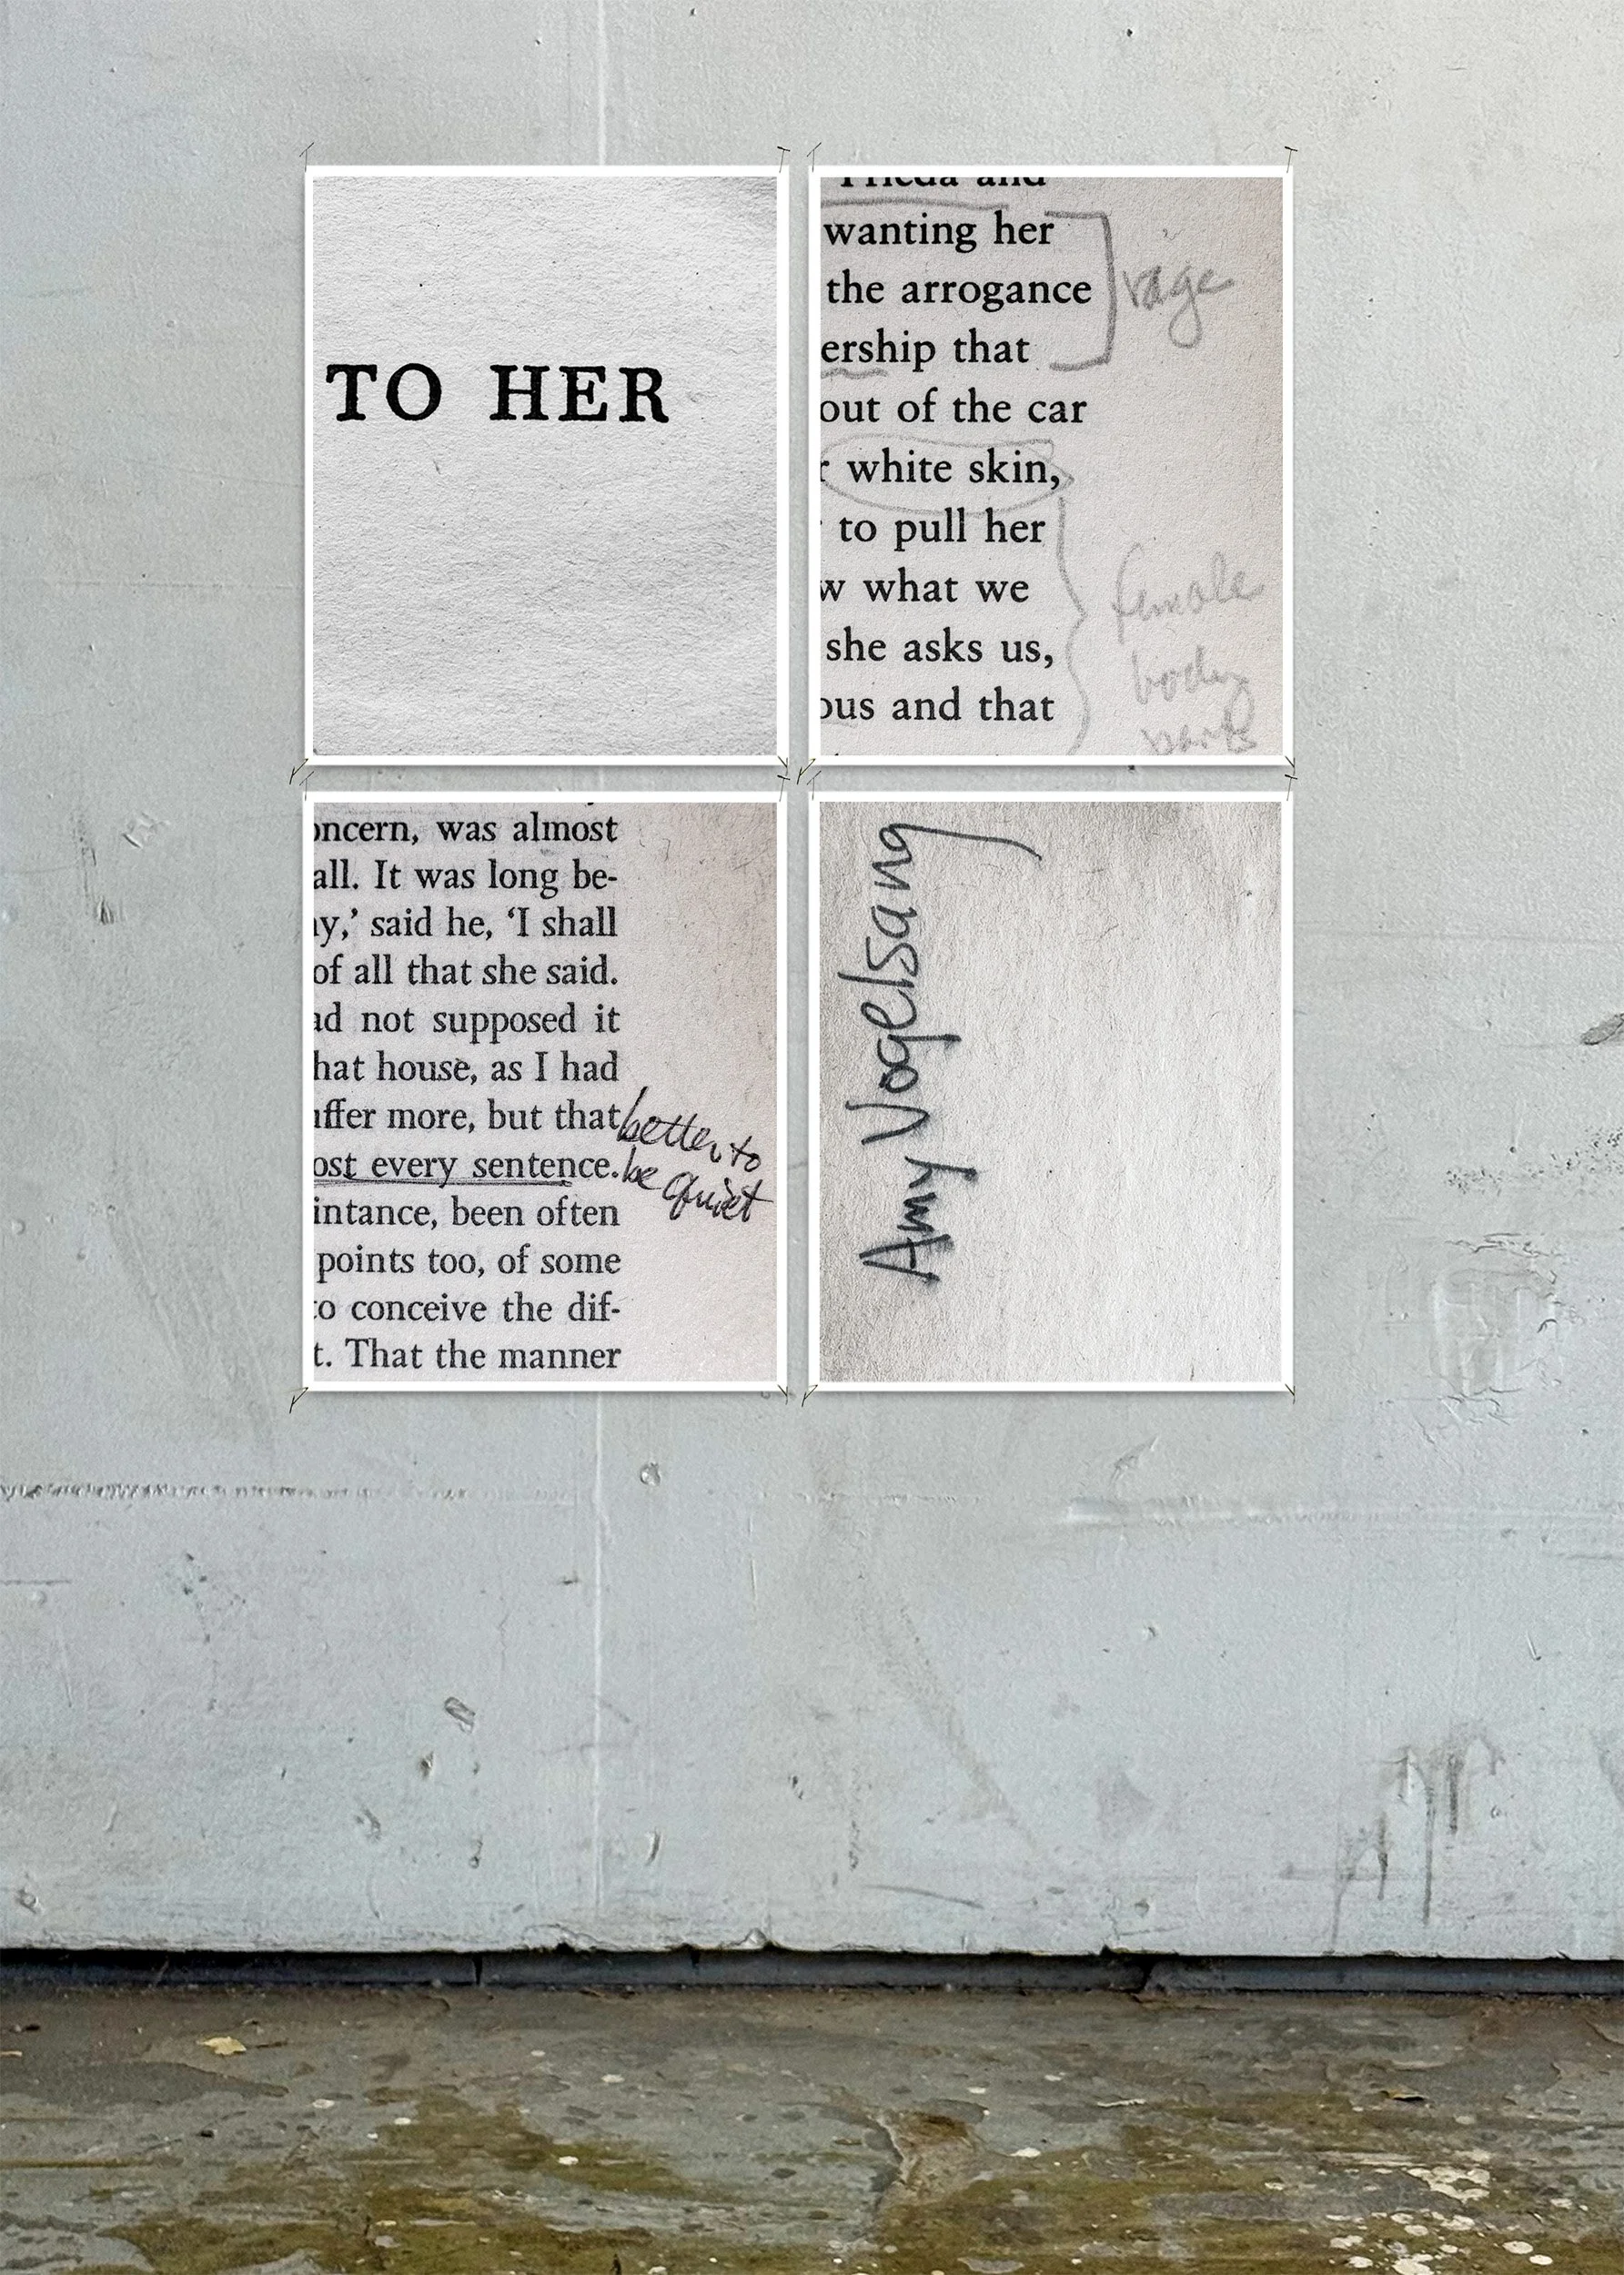 TO HER
Frieda and
wanting her
the arrogance
rage
ership that
out of the car
white skin,
to pull her
w what we
female
she asks us,
body
ous and that
parts
oncern, was almost
all. It was long be-
ay,’ said he, ‘I shall
of all that she said.
ad not supposed it
hat house, as I had
uffer more, but that
better to
ost every sentence.
be quiet
intance, been often
points too, of some
to conceive the dif-
t. That the manner
Amy Vogelsang